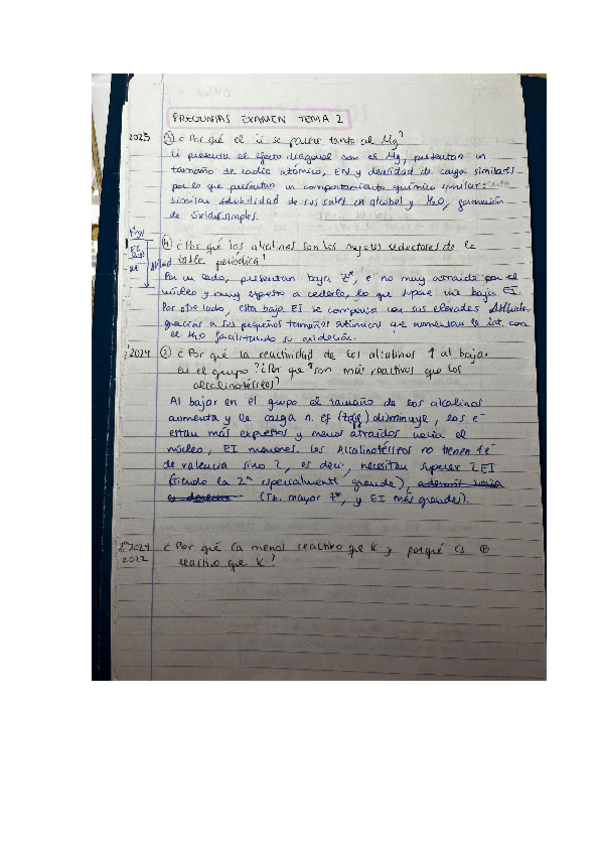 PREGUNTAS EXAMEN TEMA 2
2023 ③ ¿Por qué el Li se parece tanto al Mg?
Li presenta el efecto diagonal con el Mg, presentan un
tamaño de radio atómico, EN y densidad de carga similares
por lo que presentan un comportamiento químico similar:
similar solubilidad de sus sales en alcohol y H2O, formación
de óxidos simples.
④ ¿Por qué los alcalinos son los mejores reductores de la
tabla periódica?
Por un lado, presentan baja Z*, e- no muy atraído por el
núcleo y muy expuesto a cederlo, lo que supone una baja EI.
Por otro lado, esta baja EI se compensa con sus elevadas
gracias a sus pequeños tamaños atómicos que aumentan la int. con
el H2O facilitando su oxidación.
2024 ② ¿Por qué la reactividad de los alcalinos ↑ al bajar
en el grupo? ¿Por qué son más reactivos que los
alcalinotérreos?
Al bajar en el grupo el tamaño de los alcalinos
aumenta y la carga n. ef (Zef) disminuye, los e-
estan más expuestos y menos atraídos hacia el
núcleo, EI menores. Los Alcalinotérreos no tienen 1 e-
de valencia sino 2, es decir, necesitan superar 2 EI
(siendo la 2ª especialmente grande),
(Tb. mayor Z*, y EI más grandes).
2024 ¿Por qué Ca menos reactivo que K y porqué Cs ⊕
2022 reactivo que K?